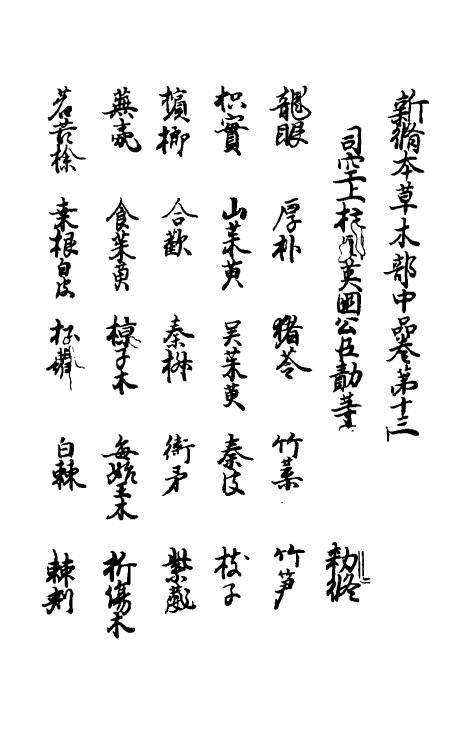 新脩本草木部中品卷第十三
司空上柱國英國公臣勣等 勑脩
龍眼 厚朴 猪苓 竹葉 竹笋
枳實 山茱萸 吳茱萸 秦皮 枝子
檳榔 合歡 秦椒 衛矛 紫葳
蕪荑 食茱萸 椋子木 每始王木 折傷木
茗苦搽 桑根白皮 白棘 棘刺